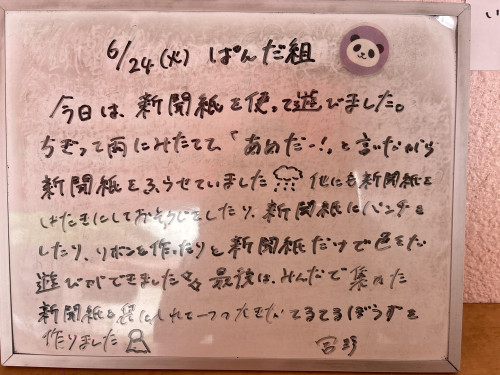 6/24(火) ぱんだ組
今日は、新聞紙を使って遊びました。
ちぎって雨にみたてて、「あめだー!」と言いながら
新聞紙をふらせていました 他にも新聞紙を
はたきにしておそうじをしたり、新聞紙にパンチを
したり、リボンを作ったりと新聞紙だけで色んな
遊びができました 最後は、みんなで集めた
新聞紙を袋に入れて一つの大きなてるてるぼうずを
作りました
い